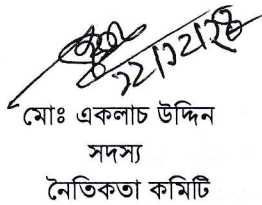 ১২/১২/২৪
মোঃ একলাচ উদ্দিন
সদস্য
নৈতিকতা কমিটি